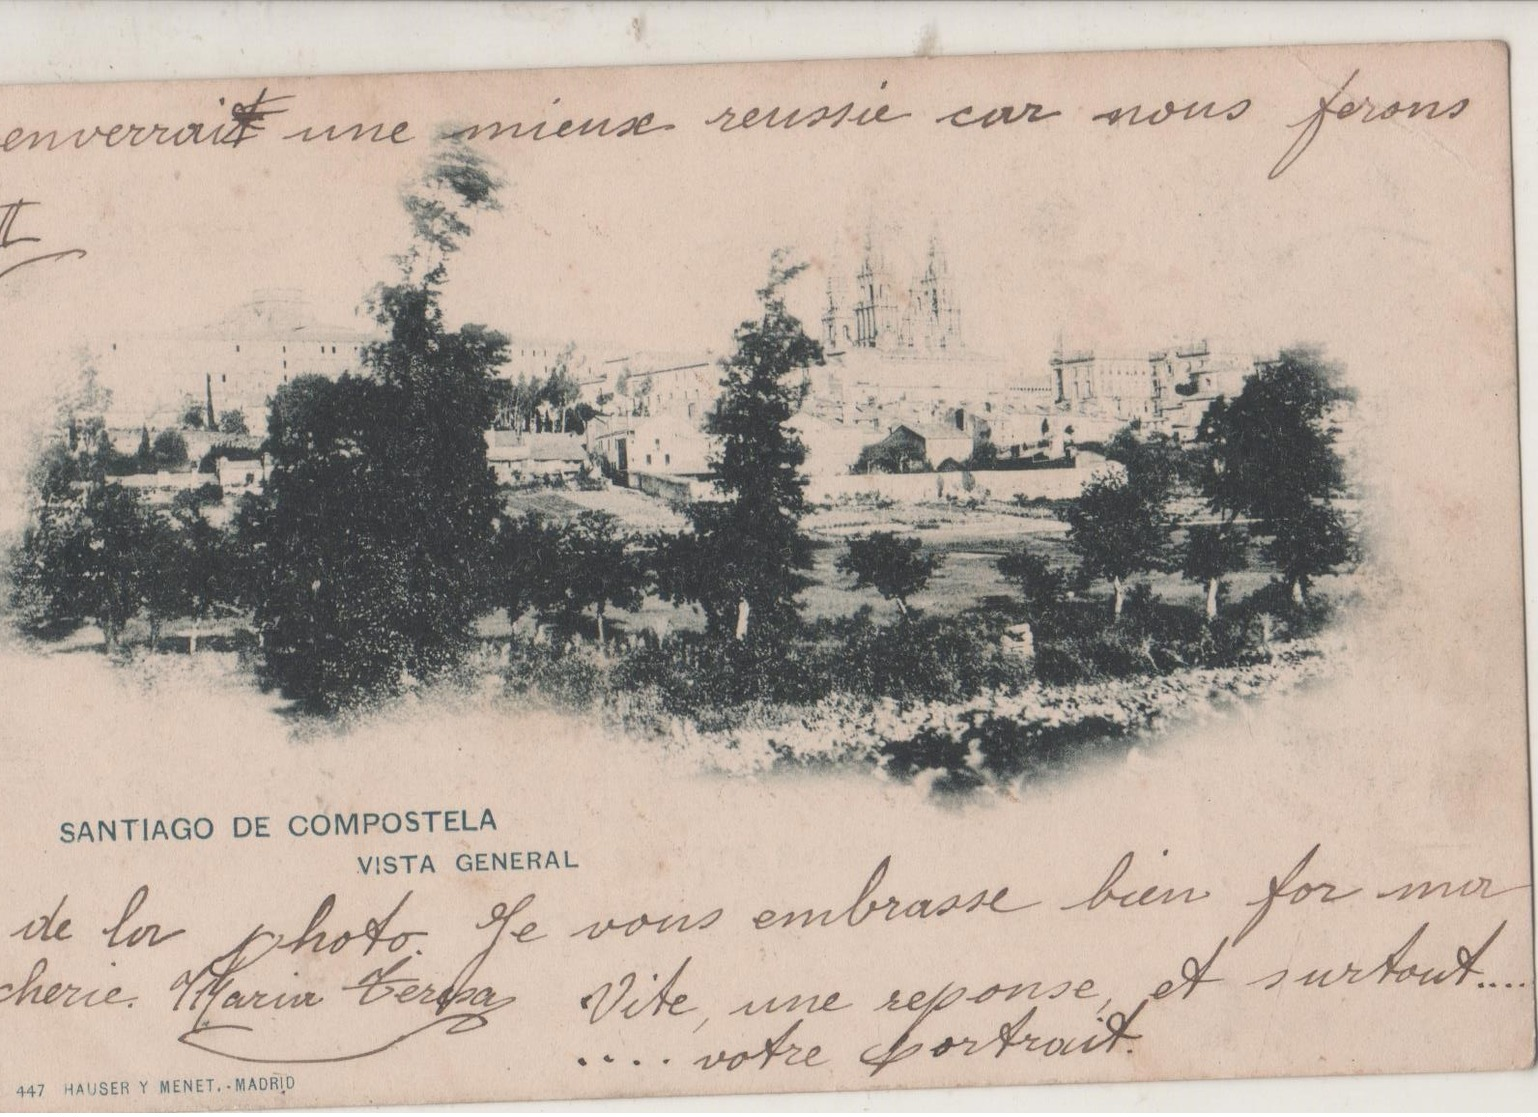 enverrait une mieux reussie car nous ferons
SANTIAGO DE COMPOSTELA
VISTA GENERAL
de la photo. Je vous embrasse bien for ma
cherie. Maria Teresa Vite, une reponse, et surtout....
.... votre portrait.
447 HAUSER Y MENET.-MADRID